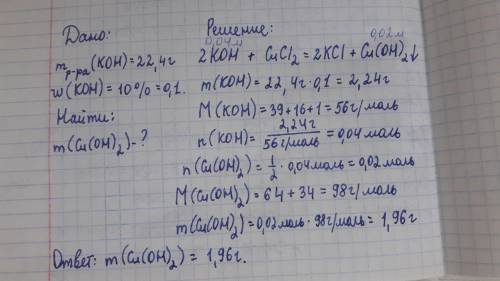 Дано:
m р-ра (KOH) = 22,4г
w(KOH) = 10% = 0,1.
Найти:
m(Cu(OH)₂) - ?
Решение:
0,04м 0,02м
2KOH + CuCl₂ = 2KCl + Cu(OH)₂↓
m(KOH) = 22,4г · 0,1 = 2,24г
M(KOH) = 39 + 16 + 1 = 56г/моль
n(KOH) = 2,24г / 56г/моль = 0,04моль
n(Cu(OH)₂) = 1/2 · 0,04моль = 0,02моль
M(Cu(OH)₂) = 64 + 34 = 98г/моль
m(Cu(OH)₂) = 0,02моль · 98г/моль = 1,96г
Ответ: m(Cu(OH)₂) = 1,96г.